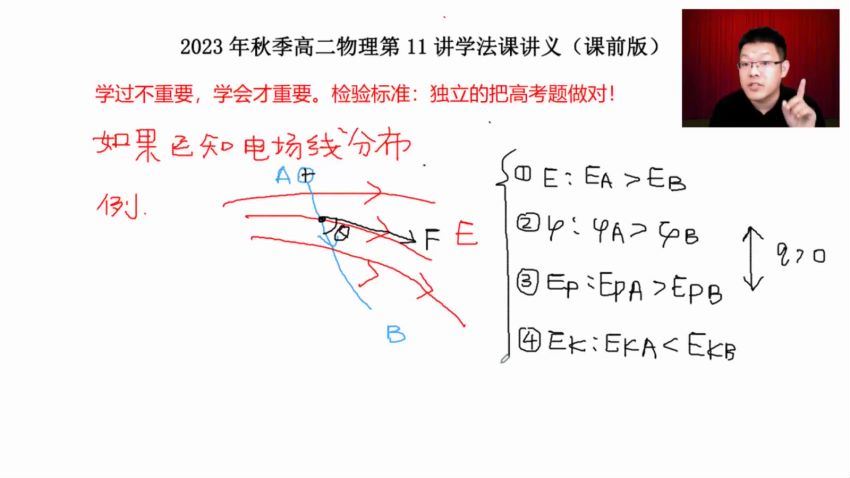 2023 年秋季高二物理第 11 讲学法课讲义（课前版）
学过不重要，学会才重要。检验标准：独立的把高考题做对！
如果已知电场线分布
例.
A +
θ
F E
B
① E : EA > EB
② φ : φA > φB
③ Ep : EpA > EpB
④ EK : EKA < EKB
q > 0